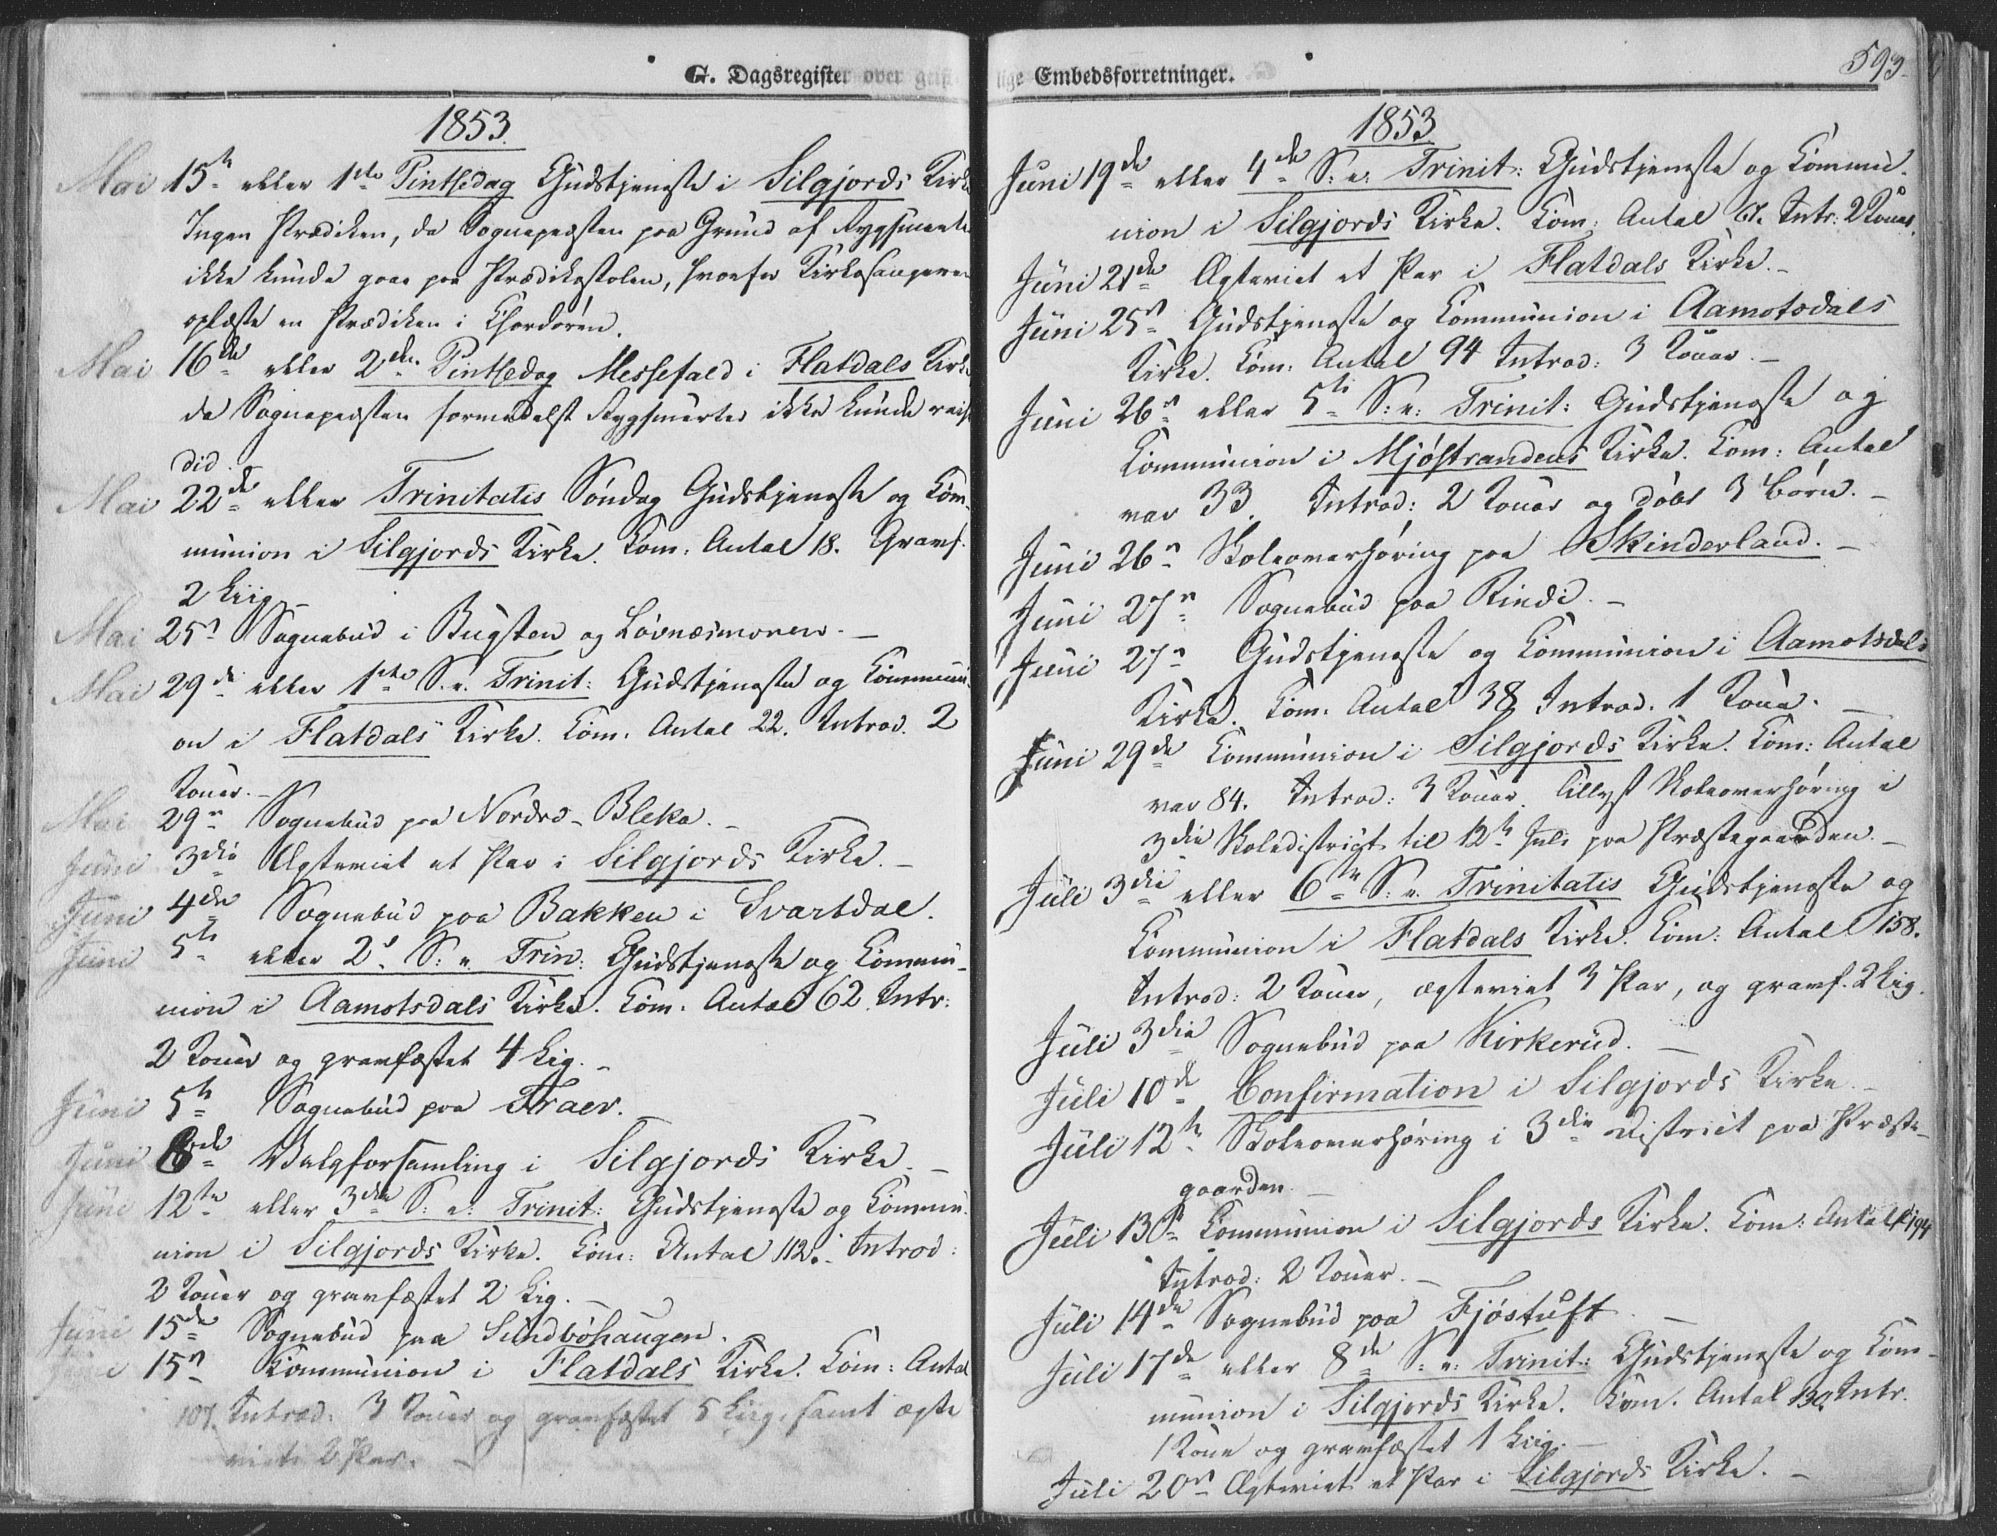 G. Dagsregister over geist-
1853.
Mai 15de eller 1ste Pintsedag Gudstjeneste i Silgjords Kirke
Ingen Prædiken, da Sognepræsten paa Grund af Rygsmerte
ikke kunde gaae paa Prædikestolen, hvorfor Kirkesangeren
oplæste en Prædiken i Chordøren.
Mai 16de eller 2den Pintsedag Messefald i Flatdals Kirke
da Sognepræsten formedelst Rygsmerter ikke kunde reise
did.
Mai 22de eller Trinitatis Søndag Gudstjeneste og Com-
munion i Silgjords Kirke. Com. Antal 18. Gravf.
2 Liig. –
Mai 25de Sognebud i Bugten og Løvnæsmoren. –
Mai 29de eller 1ste S. e. Trinit: Gudstjeneste og Communi-
on i Flatdals Kirke. Com. Antal 22. Introd. 2
Koner. –
Mai 29de Sognebud paa Nordre-Bleka. –
Juni 3die Ægteviet et Par i Silgjords Kirke. –
Juni 4de Sognebud paa Bakken i Svartdal.
Juni 5te eller 2d S: e. Trin: Gudstjeneste og Commu-
nion i Aamotsdals Kirke. Com. Antal 62. Intr:
2 Koner og gravfæstet 4 Lig. –
Juni 5te Sognebud paa Traer.
Juni 8de Valgforsamling i Silgjords Kirke. –
Juni 12te eller 3die S: e: Trinit: Gudstjeneste og Commu-
nion i Silgjords Kirke. Com: Antal 112. Introd:
2 Koner og gravfæstet 2 Lig. –
Juni 15de Sognebud paa Sundbøhaugen. –
Juni 15de Kommunion i Flatdals Kirke. Com: Antal
107. Introd: 3 Koner og gravfæstet 5 Liig, samt ægte
viet 2 Par. –
lige Embedsforretninger.
593.
1853
Juni 19de eller 4de S: e: Trinit: Gudstjeneste og Commu-
nion i Silgjords Kirke. Com: Antal 67. Intr: 2 Koner.
Juni 21de Ægteviet et Par i Flatdals Kirke. –
Juni 25de Gudstjeneste og Communion i Aamotsdals
Kirke. Com: Antal 94 Introd: 3 Koner. –
Juni 26de eller 5te S: e: Trinit: Gudstjeneste og
Communion i Mjøstrandens Kirke. Com: Antal
var 33. Introd: 2 Koner og døbt 3 Børn. –
Juni 26de Skoleoverhøring paa Skinderland. –
Juni 27de Sognebud paa Rinde. –
Juni 27de Gudstjeneste og Communion i Aamotsdals
Kirke. Com. Antal 38 Introd. 1 Kone. –
Juni 29de Communion i Silgjords Kirke. Com: Antal
var 84. Introd: 3 Koner. Tillyst Skoleoverhøring i
3die Skoledistrigt til 12te Juli paa Præstegaarden. –
Juli 3die eller 6te S: e. Trinitatis Gudstjeneste og
Communion i Flatdals Kirke. Com: Antal 158.
Introd: 2 Koner, ægteviet 3 Par, og gravf. 2 Lig.
Juli 3die Sognebud paa Kirkerud. –
Juli 10de Confirmation i Silgjords Kirke. –
Juli 12te Skoleoverhøring i 3die District paa Præste-
gaarden. –
Juli 13de Communion i Silgjords Kirke. Com: Antal 194
Introd: 2 Koner. –
Juli 14de Sognebud paa Fjøstuft. –
Juli 17de eller 8de S: e: Trinit: Gudstjeneste og Com-
munion i Silgjords Kirke. Kom. Antal 130. Intr.
1 Kone og gravfæstet 1 Liig. –
Juli 20de Ægteviet et Par i Silgjords Kirke. –